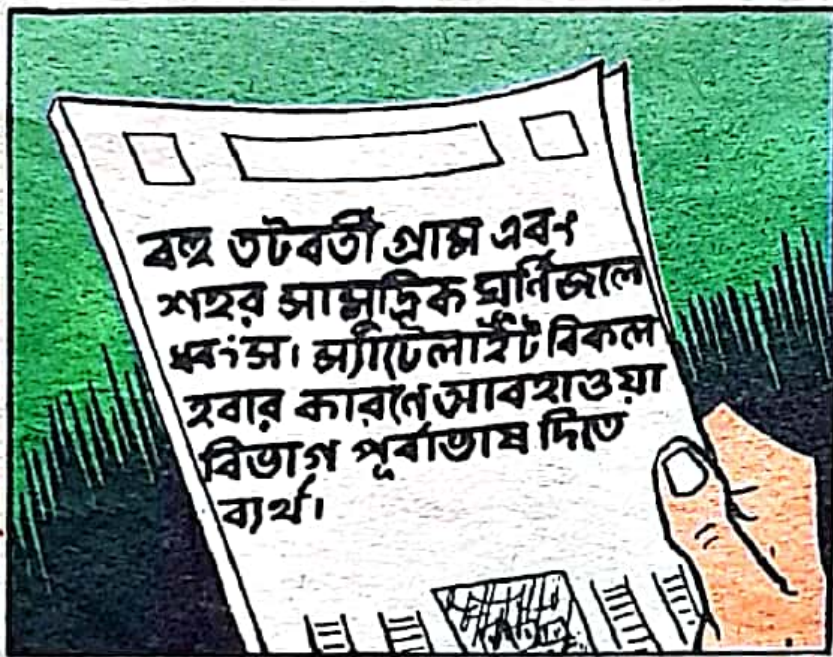 বহু তটবর্তী গ্রাম এবং
শহর সামুদ্রিক ঘূর্ণিজলে
ধ্বংস। স্যাটেলাইট বিকল
হবার কারণে আবহাওয়া
বিভাগ পূর্বাভাষ দিতে
ব্যর্থ।